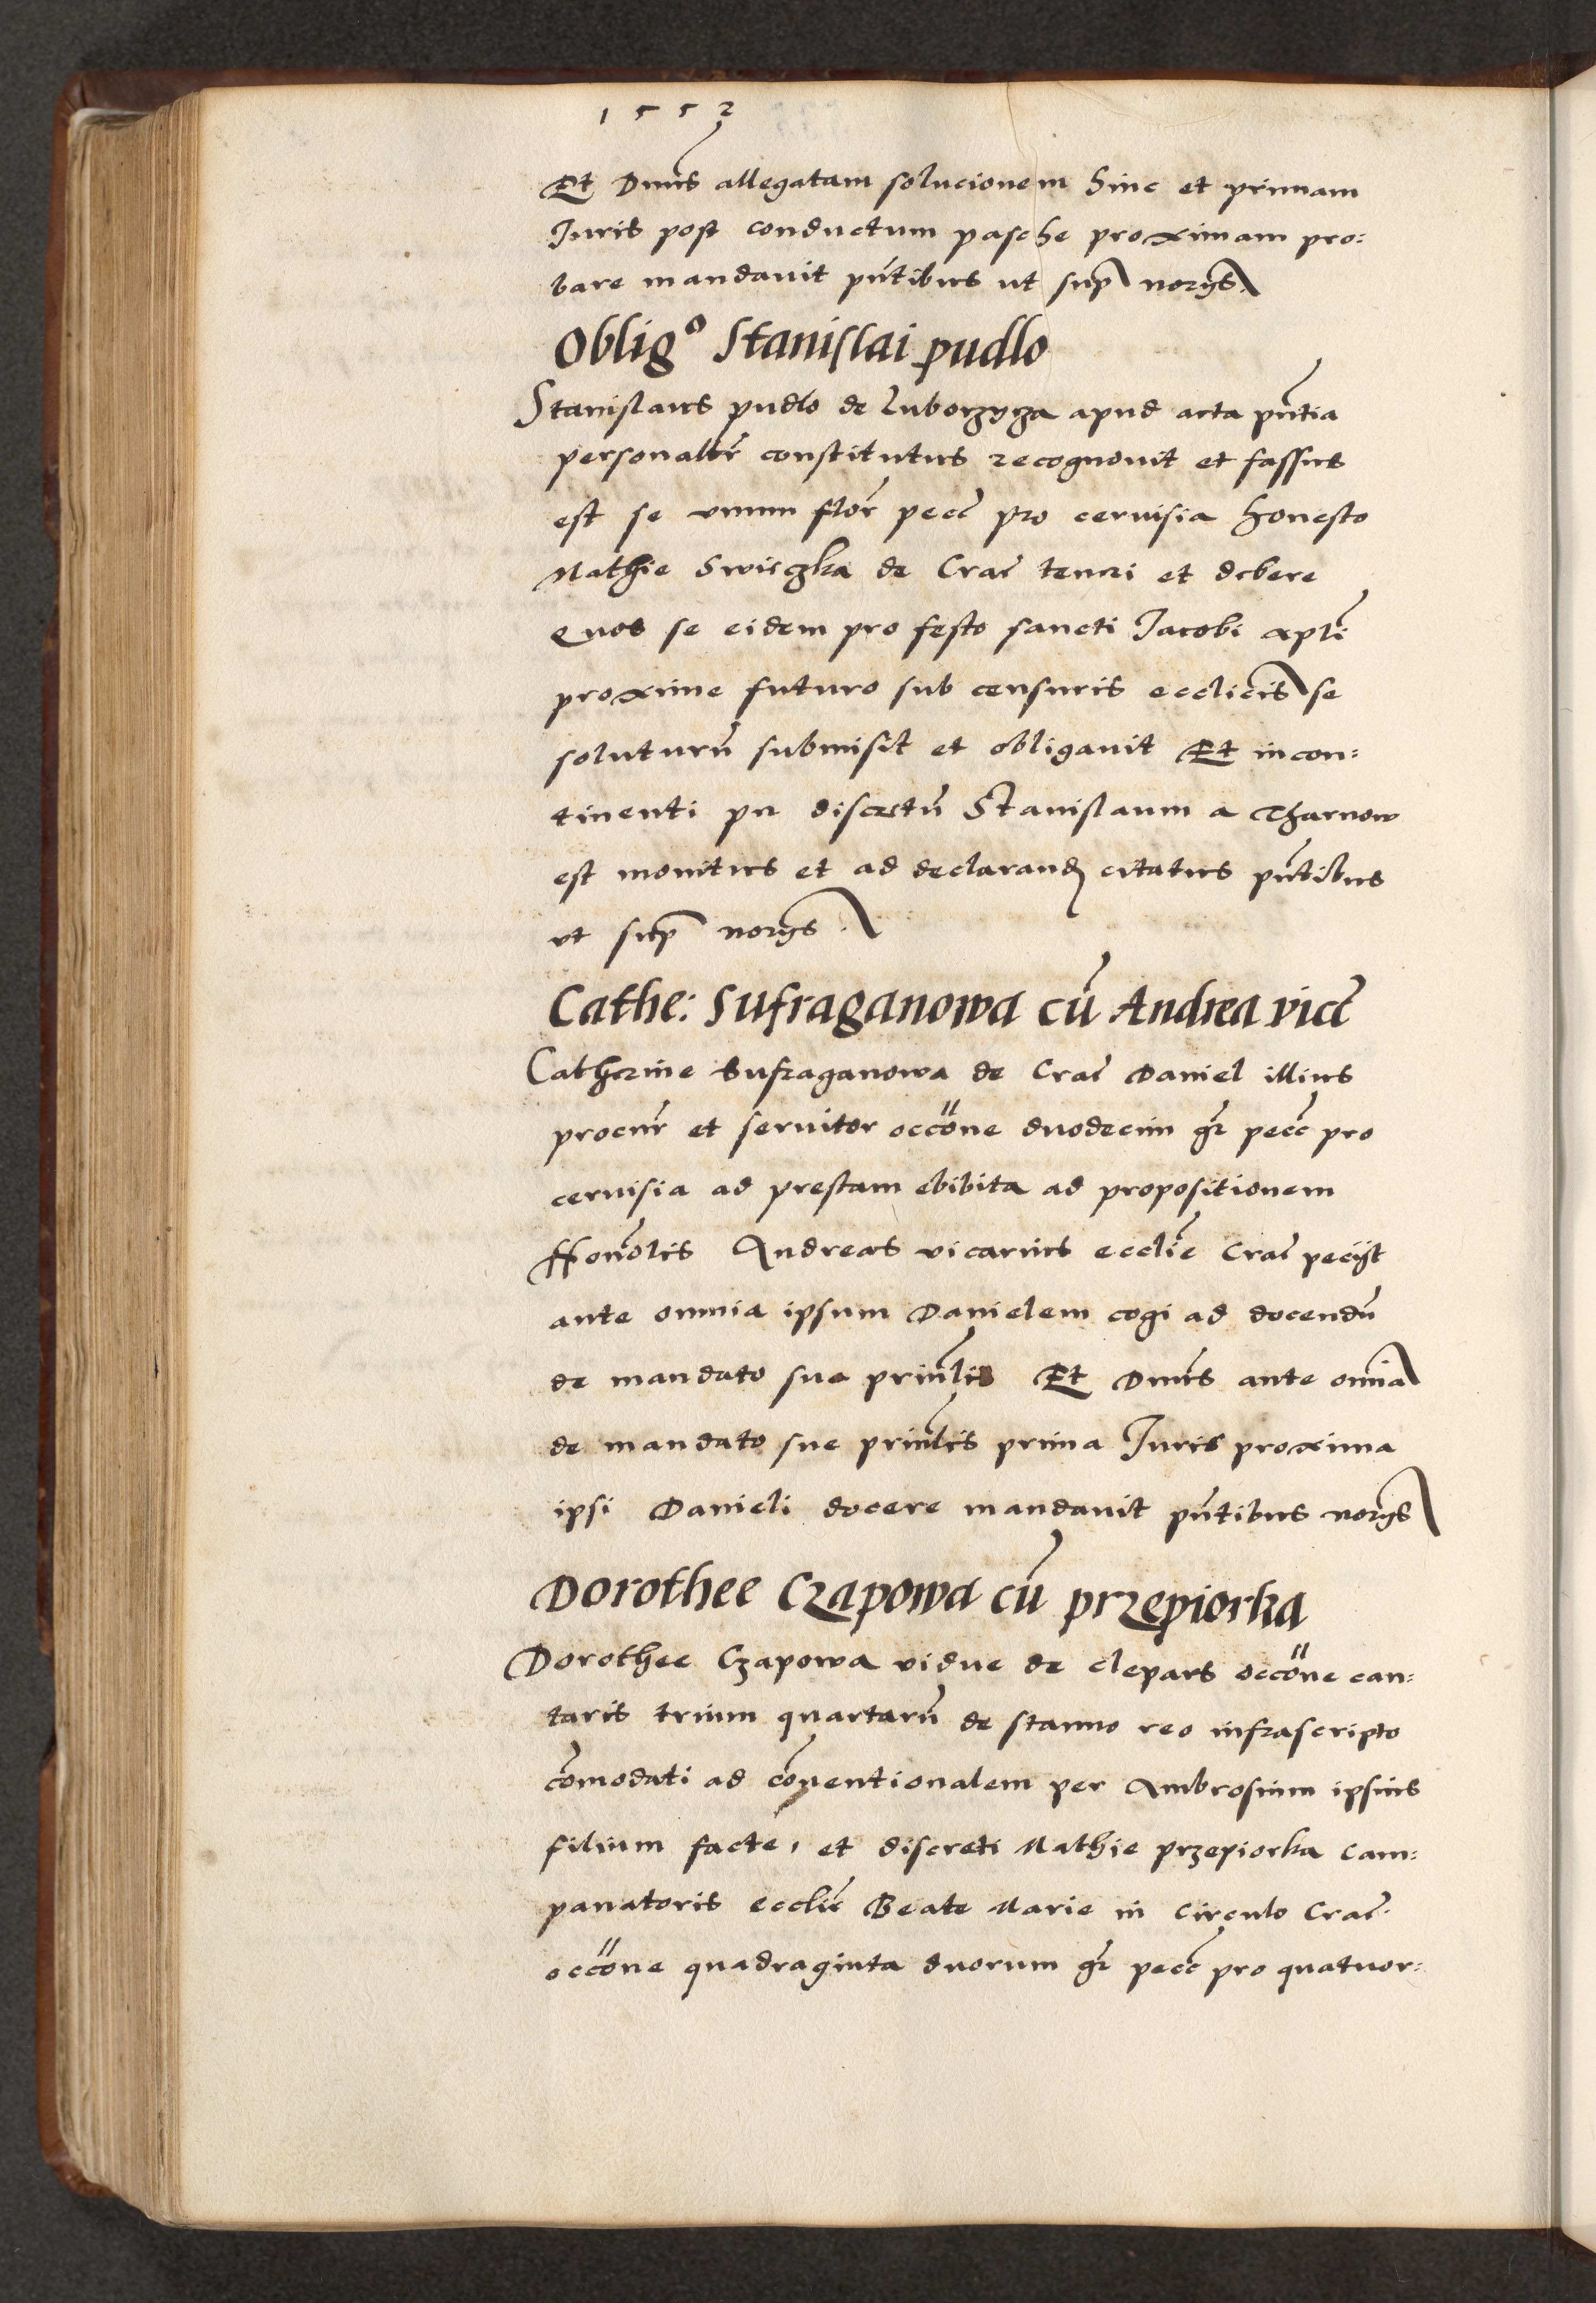 1552
Et Dnūs allegatam solucionem hinc et primam
Juris post conductum pasche proximam pro:
bare mandauit pn̄tibus ut sup norijs
Obligº Stanislai pudlo
Stanislaus pudlo de Luborzycza apud acta pn̄tia
personalr̄ constitutus recognouit et fassus
est se vnum flor̄ pecc̄ pro ceruisia honesto
Mathie Swisczka de Crac̄ teneri et debere
Quos se eidem pro festo sancti Jacobi apl̄i
proxime futuro sub censuris eccl̄icis se
soluturū submisit et obligauit Et incon:
tinenti per discretū Stanislaum a Tharnow
est monitus et ad declarand citatus pn̄tibus
vt sup norijs
Cathe: Sufraganowa cū Andrea vicc̄
Catherine Sufraganowa de Crac̄ Daniel illius
procur̄ et seruitor occōne duodecim gr̄ pecc̄ pro
ceruisia ad prestam ebibita ad propositionem
Hon̄olis Andreas vicarius eccl̄ie Crac̄ pecijt
ante omnia ipsum Danielem cogi ad docendū
de mandato sue prin̄lis Et Dnūs ante omnia
de mandato sue prin̄lis prima Juris proxima
ipsi Danieli docere mandauit pn̄tibus norijs
Dorothee Czapowa cū przepiorka
Dorothee Czapowa vidue de clepars occōne can:
taris trium quartarū de stanno reo infrascripto
cōmodati ad cōuentionalem per Ambrosium ipsius
filium facte, et discreti Mathie przepiorka Cam:
panatoris eccl̄ie Beate Marie in Circulo Crac̄
occōne quadraginta duorum gr̄ pecc̄ pro quatuor: